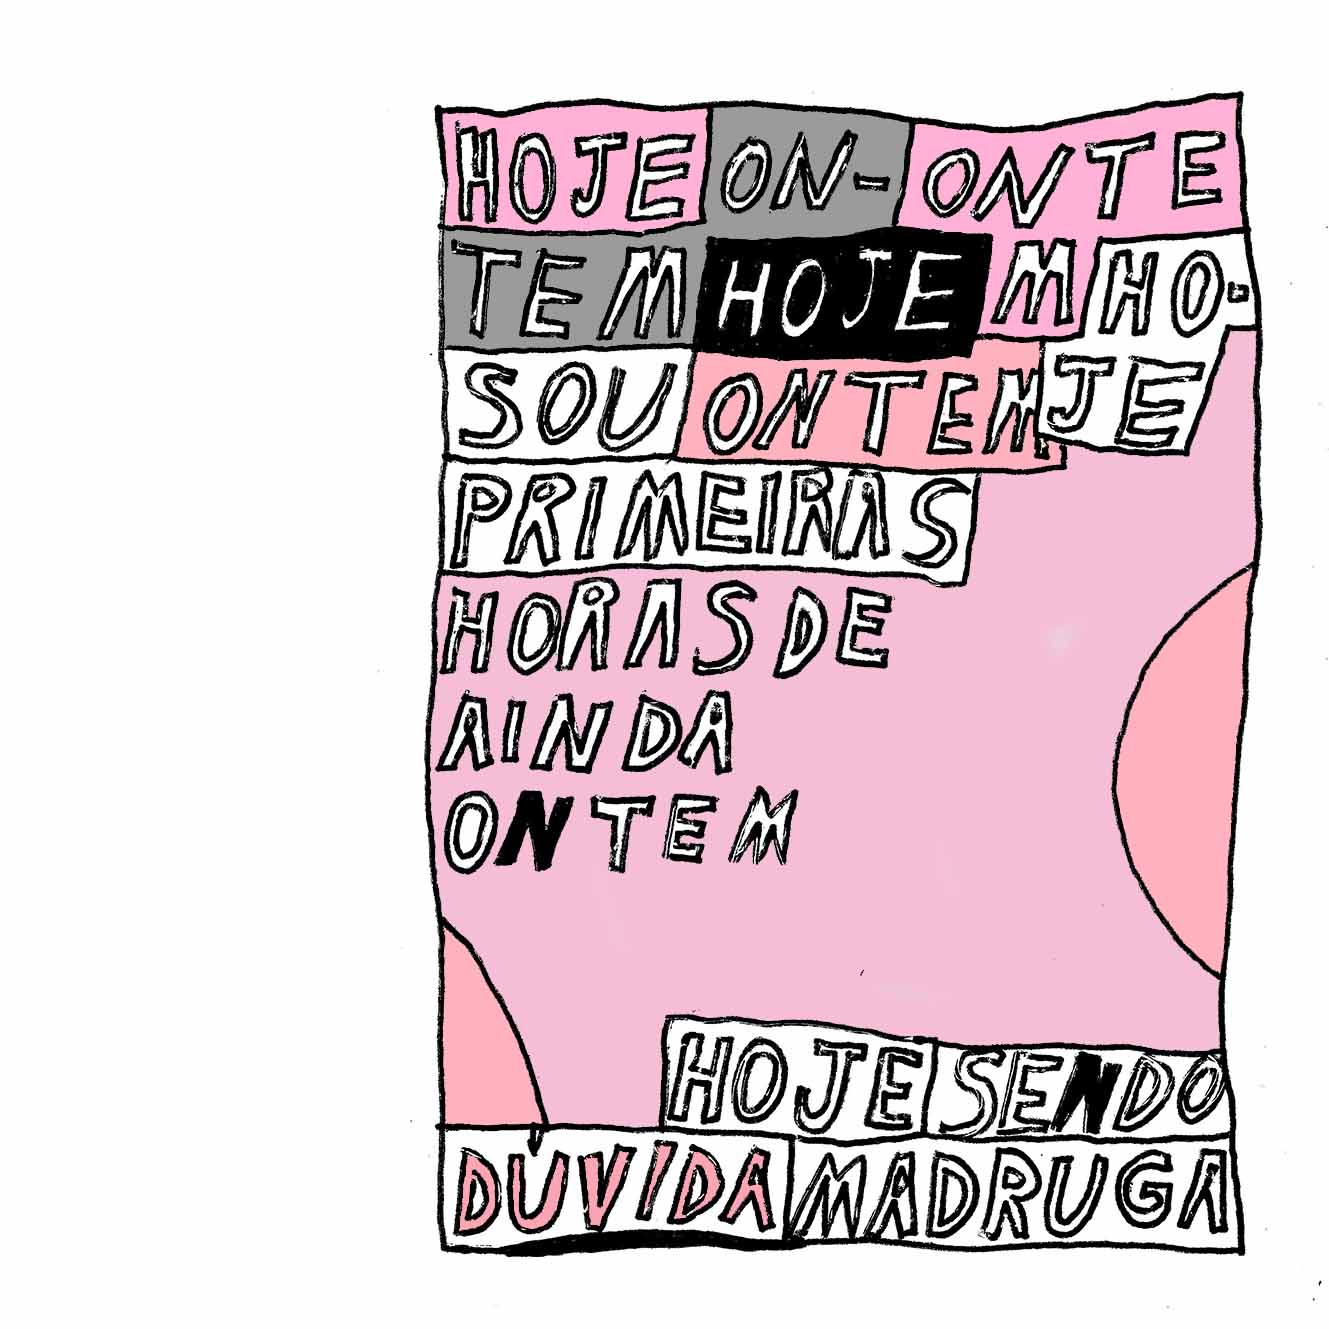 HOJE ON- ONTE
TEM HOJE M HO-
SOU ONTEM JE
PRIMEIRAS
HORAS DE
AINDA
ONTEM
HOJE SENDO
DÚVIDA MADRUGA